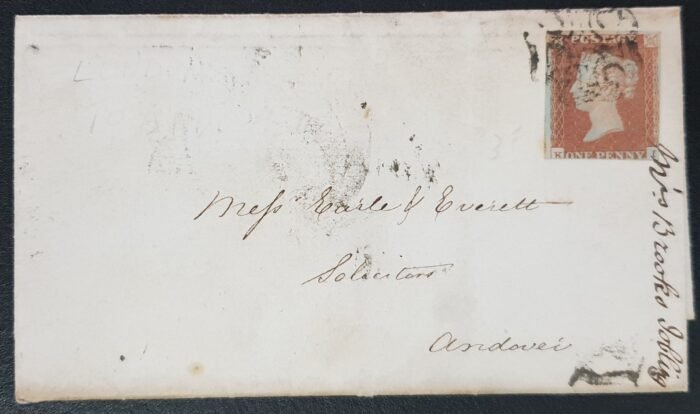 POSTAGE
ONE PENNY
Mess Earle & Everett
Solicitors
Andover
Mrs Brooks